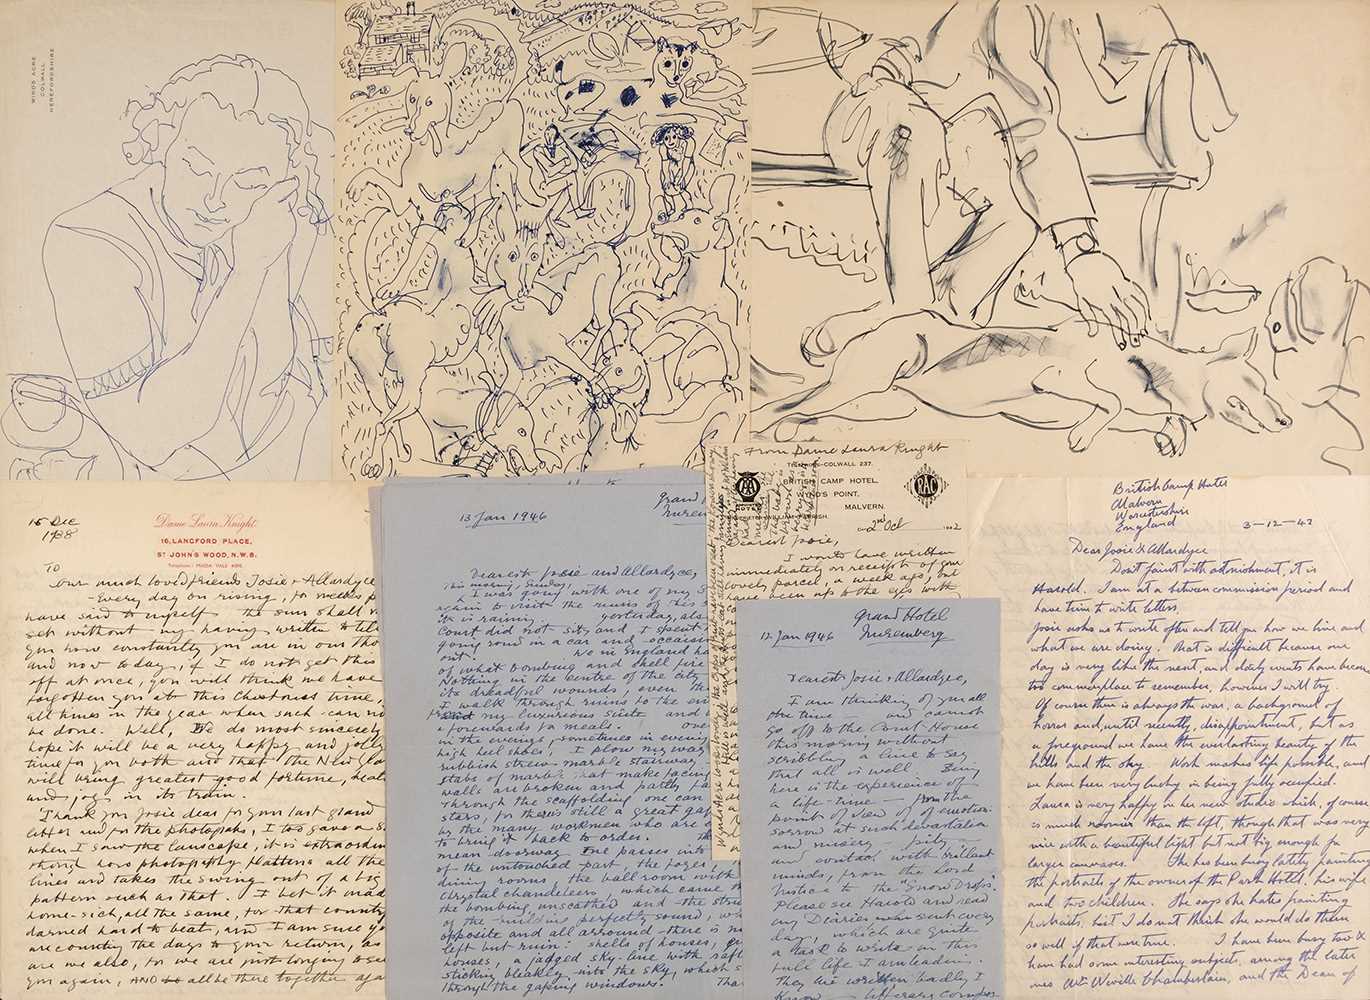 WINDS ACRE
COLWALL
HEREFORDSHIRE
15 Dec
1938
Dame Laura Knight,
16, LANGFORD PLACE,
ST JOHN'S WOOD, N.W.8.
Telephone: MAIDA VALE 4091.
TO
our much loved friends Josie & Allardyce
- Every day on rising, for weeks p
have said to myself the sun shall n
set without my having written to tel
you how constantly you are in our tho
and now to-day, if I do not get this
off at once, you will think we have
forgotten you at this Christmas time,
all times in the year when such can no
be done. Well, We do most sincerely
hope it will be a very happy and jolly
time for you both and that the New Year
will bring greatest good fortune, heal
and joys in its train.
Thank you Josie dear for your last grand
letter and for the photographs, I too gave a
when I saw the landscape, it is extraordin
thing how photography flattens all the
lines and takes the swing out of a big
pattern such as that. I bet it made
home-sick, all the same, for that country
darned hard to beat, and I am sure yo
are counting the days to your return, as
are we also, for we are just longing to see
you again, AND to all be there together agai
13 Jan 1946
Grand
Nuremb
Dearest Josie and Allardyce,
This morning, Sunday,
I was going with one of my
again to visit the ruins of this
it is raining. yesterday, als
Court did not sit, and I spent
going round in a car and occasion
out. We in England ha
of what bombing and shell fire
Nothing in the centre of the city
its dreadful wounds even the
I walk through ruins to the en
my luxurious suite and
afterwards to meals over
in the evenings, sometimes in evening
high heel shoes; I plow my way
rubbish strewn marble stairway
slabs of marble that make facing
walls are broken and partly fa
Through the scaffolding one can
stars, for there's still a great gap
by the many workmen who are
to bring it back to order. Th
mean doorway one passes into
of the untouched part, the foyer
dining rooms, the ballroom with
chrystal chandeliers, which came th
the bombing, unscathed and the stru
of the building perfectly sound, wh
opposite and all arround there is n
left but ruin: shells of houses,
houses, a jagged sky-line with raft
sticking bleakly into the sky, which s
through the gaping windows. Tha
From Dame Laura Knight
COLWALL 237.
AA
HOTEL
BRITISH CAMP HOTEL,
WYND'S POINT,
MALVERN.
RAC
2nd Oct
Dearest Josie,
I would have written
immediately on receipt of your
lovely parcel, a week ago, but
have been up to the eyes with
12 Jan 1946
Grand Hotel
Nuremberg
Dearest Josie & Allardyce,
I am thinking of you all
the time — and cannot
go off to the Court House
this morning without
scribbling a line to say
that all is well. Being
here is the experience of
a life-time — from the
point of view of of emotion.
sorrow at such devastation
and misery - pity -
and contact with brilliant
minds, from the Lord
Justice to the "Snow Drops".
Please see Harold and read
my Diaries, who sent every
day, which are quite
a task to write in this
full life I am leading.
They are written badly I
know — literary compos
British Camp Hotel
Malvern
Worcestershire
England
3-12-42
Dear Josie & Allardyce
Don't faint with astonishment, it is
Harold. I am at a between commission period and
have time to write letters.
Josie asks us to write often and tell you how we live and
what we are doing. That is difficult because our
day is very like the next, and daily wants have become
too commonplace to remember, however I will try.
Of course there is always the war, a background of
horror and, until recently, disappointment, but as
a foreground we have the everlasting beauty of the
hills and the sky. Work makes life possible, and
we have been very lucky in being fully occupied.
Laura is very happy in her new studio which, of course
is much roomier than the loft, though that was very
nice with a beautiful light but not big enough for
larger canvases. She has been busy lately painting
the portraits of the owner of the Park Hotel, his wife
and two children. She says she hates painting
portraits, but I do not think she would do them
so well if that were true. I have been busy too &
have had some interesting subjects, among the later
ones Mrs Neville Chamberlain, and the Dean of